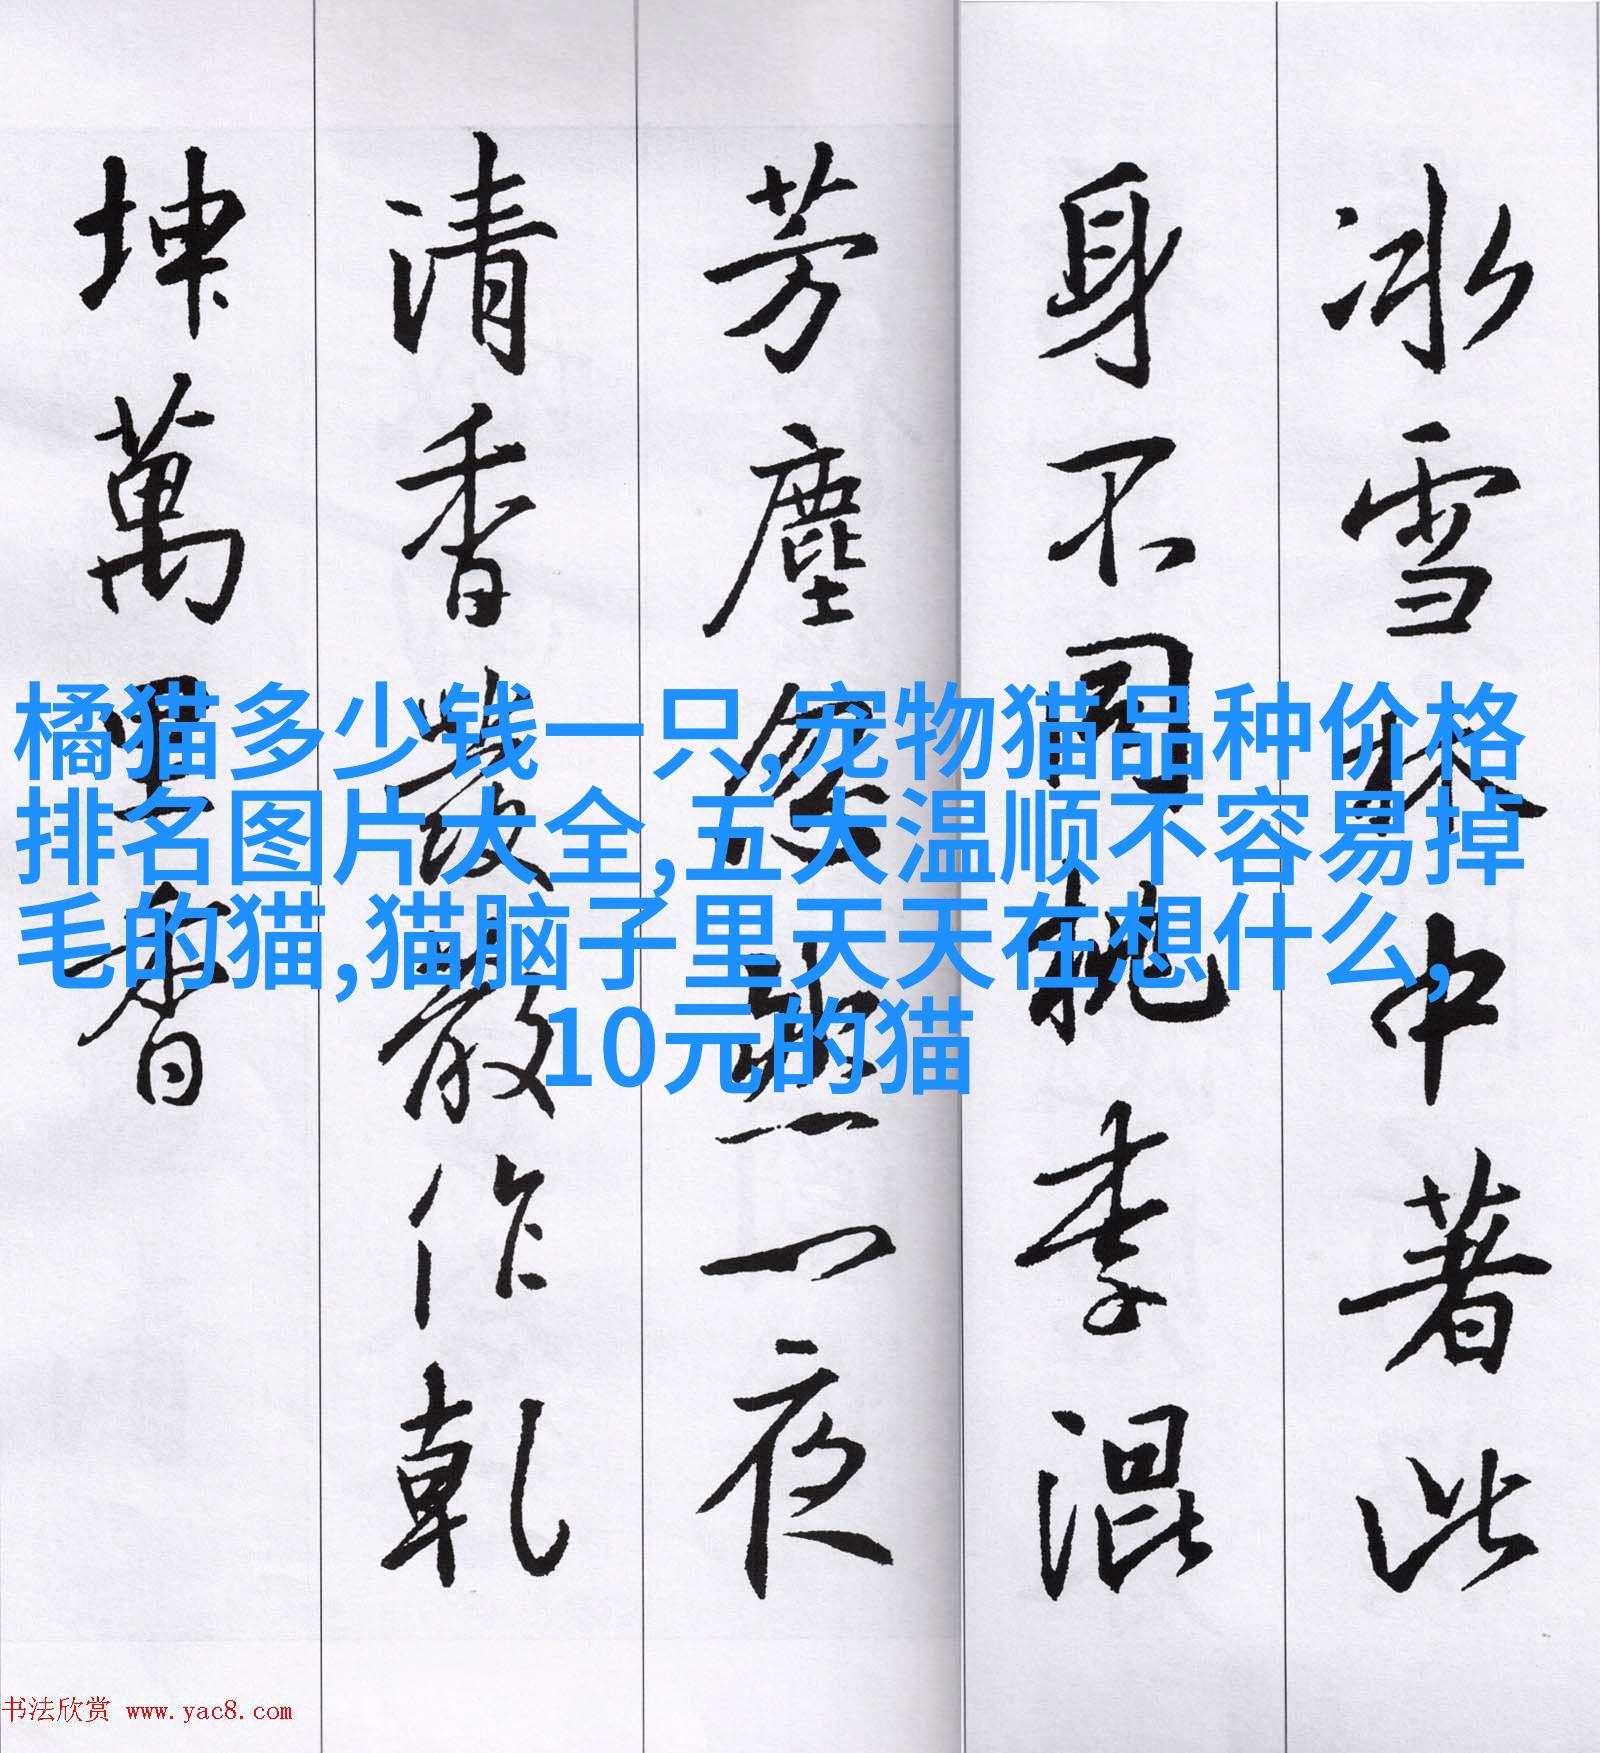 冰雪林中著此
身不同桃李混
芳塵忽然一夜
清香發散作乾
坤萬里春
橘猫多少钱一只,宠物猫品种价格
排名图片大全,五大温顺不容易掉
毛的猫,猫脑子里天天在想什么,
10元的猫
书法欣赏 www.yac8.com